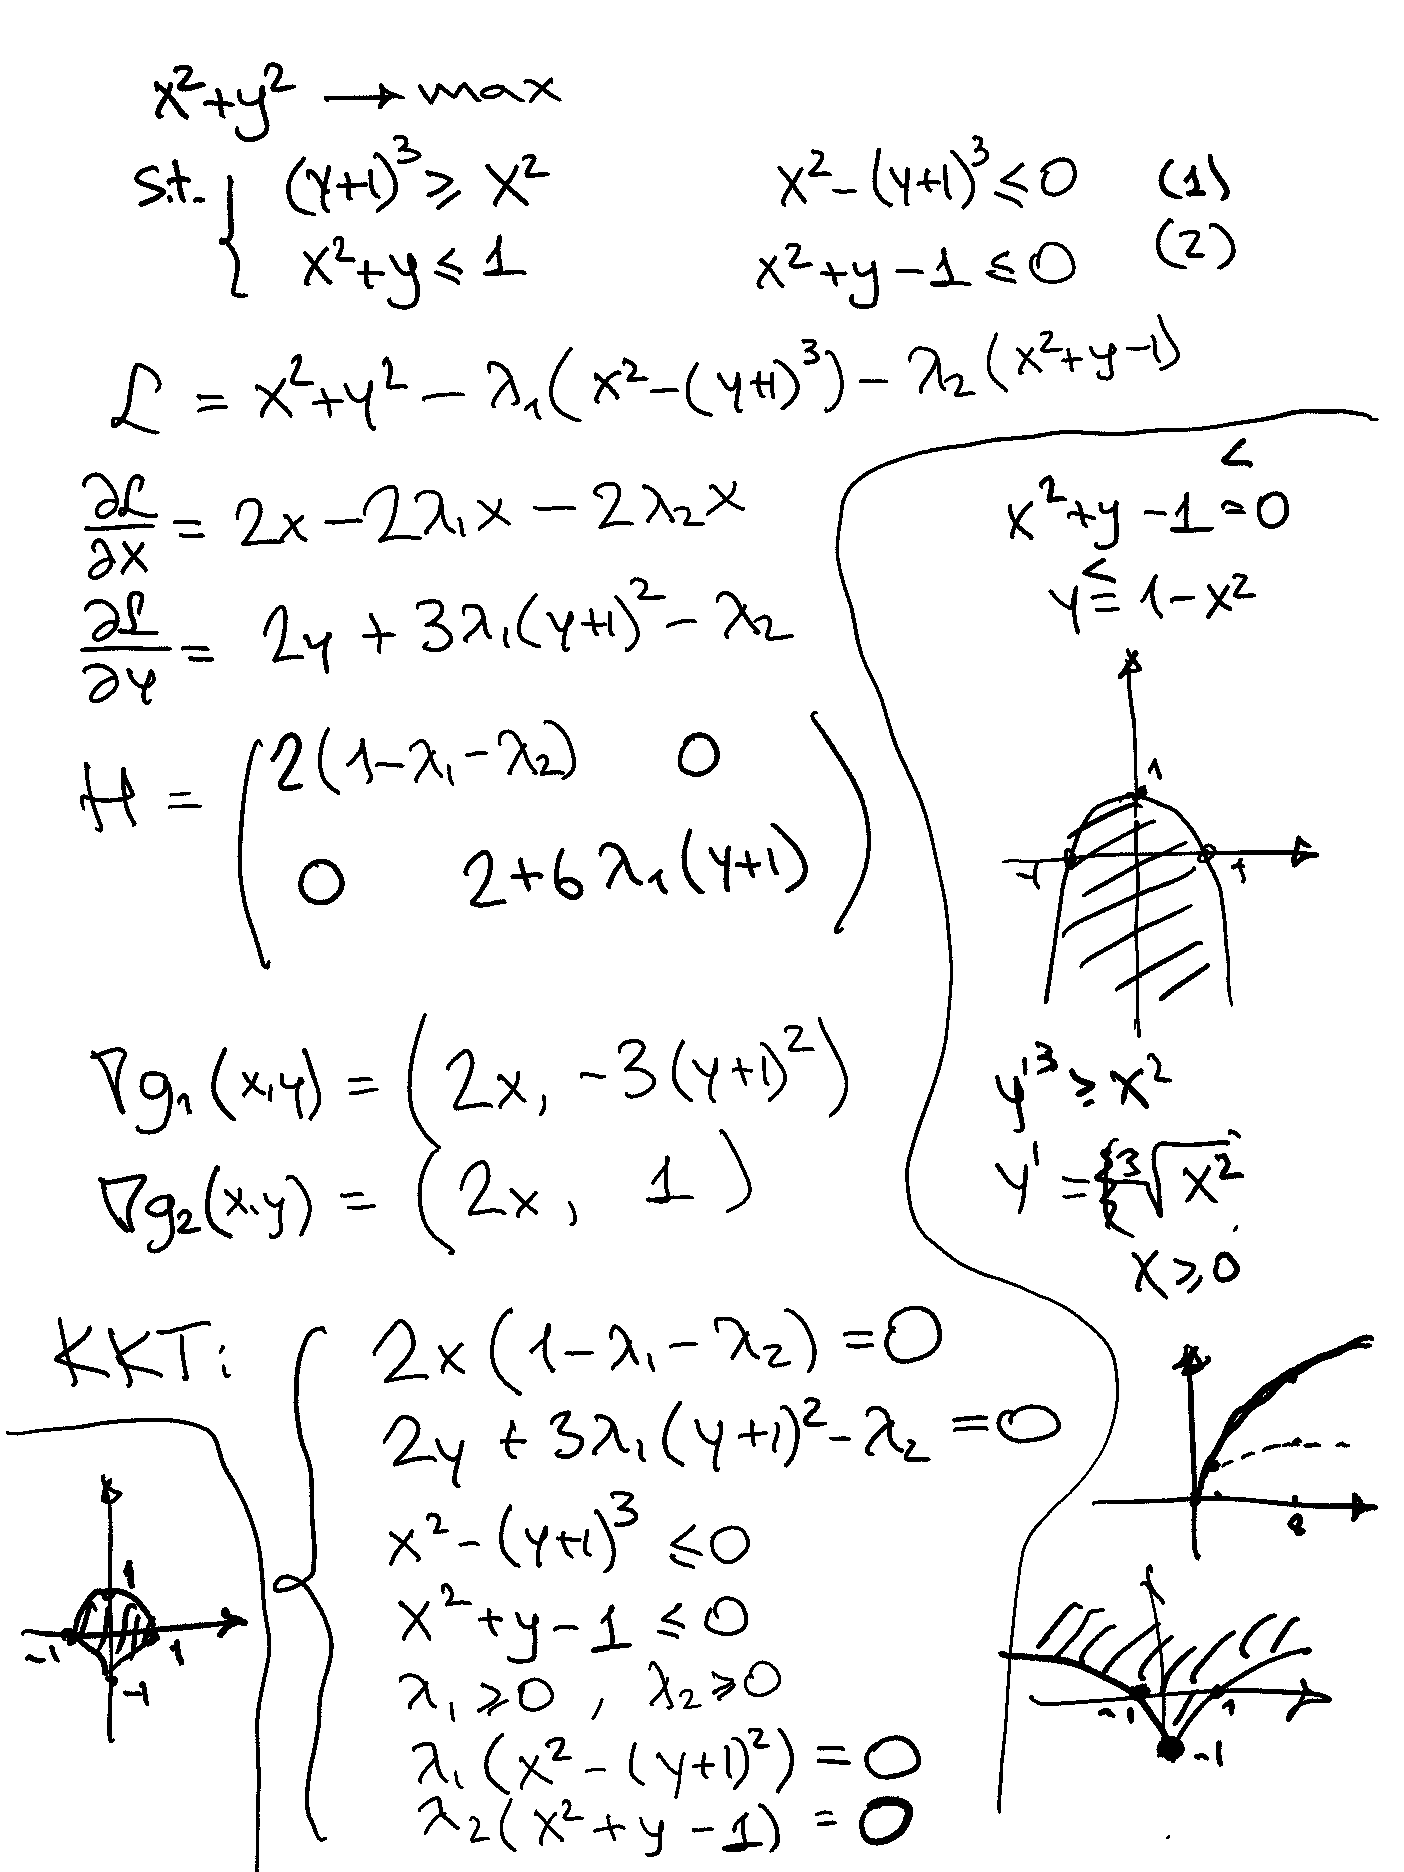 x²+y² → max
s.t. { (y+1)³ ⩾ x²    x²-(y+1)³ ⩽ 0 (1)
x²+y ⩽ 1    x²+y-1 ⩽ 0 (2)
ℒ = x²+y² - λ₁(x²-(y+1)³) - λ₂(x²+y-1)
∂ℒ/∂x = 2x - 2λ₁x - 2λ₂x
∂ℒ/∂y = 2y + 3λ₁(y+1)² - λ₂
H = ( 2(1-λ₁-λ₂)  0
0  2+6λ₁(y+1) )
∇g₁(x,y) = (2x, -3(y+1)²)
∇g₂(x,y) = (2x, 1)
KKT: { 2x(1-λ₁-λ₂) = 0
2y + 3λ₁(y+1)² - λ₂ = 0
x²-(y+1)³ ⩽ 0
x²+y-1 ⩽ 0
λ₁ ⩾ 0, λ₂ ⩾ 0
λ₁(x²-(y+1)²) = 0
λ₂(x²+y-1) = 0
1
-1 1
-1
<
x²+y-1 = 0
<
y = 1-x²
1
-1 1
y'³ ⩾ x²
y' = ³√x²
x ⩾ 0
8
-1 1
-1